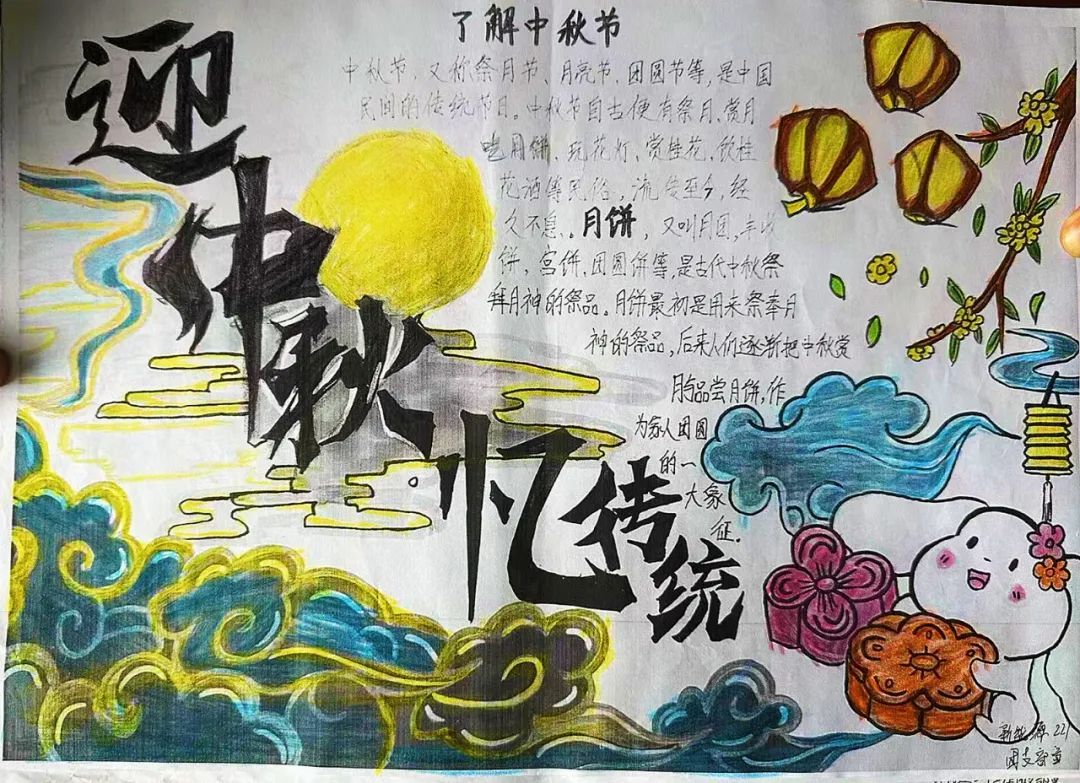 迎中秋忆传统
了解中秋节
中秋节，又称祭月节、月亮节、团圆节等，是中国
民间的传统节日。中秋节自古便有祭月、赏月
吃月饼、玩花灯、赏桂花、饮桂
花酒等民俗，流传至今，经
久不息。月饼，又叫月团、丰收
饼、宫饼、团圆饼等，是古代中秋祭
拜月神的祭品。月饼最初是用来祭奉月
神的祭品，后来人们逐渐把中秋赏
月与品尝月饼，作
为家人团圆
的一
大象
征.
221